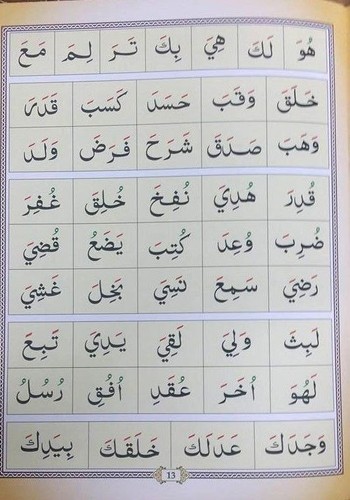 هُوَ لَكَ هِيَ بِكَ تَرَ لِمَ مَعَ
خَلَقَ وَقَبَ حَسَدَ كَسَبَ قَدَرَ
وَهَبَ صَدَقَ شَرَحَ فَرَضَ وَلَدَ
قُدِرَ هُدِيَ نُفِخَ خُلِقَ غُفِرَ
ضُرِبَ وُعِدَ كُتِبَ يَضَعُ قُضِيَ
رَضِيَ سَمِعَ نَسِيَ بَخِلَ غَشِيَ
لَبِثَ وَلِيَ لَقِيَ يَدِيَ تَبِعَ
لَهُوَ اُخَرَ عُقَدِ اُفُقِ رُسُلُ
وَجَدَكَ عَدَلَكَ خَلَقَكَ بِيَدِكَ
13